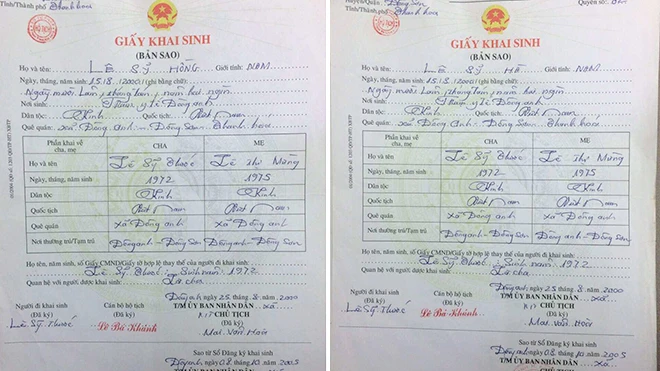 Tỉnh/Thành phố Thanh hoá
GIẤY KHAI SINH
(BẢN SAO)
Họ và tên: LÊ SỸ HỒNG Giới tính: NAM
Ngày, tháng, năm sinh: 15/8/2000 (ghi bằng chữ):
Ngày mười lăm, tháng tám, năm hai ngìn
Nơi sinh: Trạm y tế Đông anh
Dân tộc: Kinh Quốc tịch: Việt Nam
Quê quán: xã Đông Anh - Đông Sơn - Thanh hoá
Phần khai về cha, mẹ CHA MẸ
Họ và tên Lê Sỹ Thước Lê Thị Mừng
Ngày, tháng, năm sinh 1972 1975
Dân tộc Kinh Kinh
Quốc tịch Việt Nam Việt Nam
Quê quán xã Đông anh xã Đông anh
Nơi thường trú/Tạm trú Đông anh - Đông Sơn Đông anh - Đông Sơn
Họ tên, năm sinh, số Giấy CMND/Giấy tờ hợp lệ thay thế của người đi khai sinh:
Lê Sỹ Thước Sinh năm 1972
Quan hệ với người được khai sinh: Là cha
Đông anh, ngày 25 tháng 8 năm 2000
T/M ỦY BAN NHÂN DÂN xã
Người đi khai sinh Cán bộ hộ tịch CHỦ TỊCH
(Đã ký) (Đã ký) (Đã ký)
Lê Sỹ Thước Lê Bá Khánh Mai Văn Hoài
Sao từ Sổ Đăng ký khai sinh
Đông anh, ngày 08 tháng 10 năm 2005
T/M ỦY BAN NHÂN DÂN
Huyện/Quận Đông Sơn
Tỉnh/Thành phố Thanh hoá
Quyển số:
GIẤY KHAI SINH
(BẢN SAO)
Họ và tên: LÊ SỸ HÀ Giới tính: NAM
Ngày, tháng, năm sinh: 15/8/2000 (ghi bằng chữ):
Ngày mười lăm, tháng tám, năm hai ngìn
Nơi sinh: Trạm y tế Đông anh
Dân tộc: Kinh Quốc tịch: Việt Nam
Quê quán: xã Đông Anh - Đông Sơn - Thanh hoá
Phần khai về cha, mẹ CHA MẸ
Họ và tên Lê Sỹ Thước Lê Thị Mừng
Ngày, tháng, năm sinh 1972 1975
Dân tộc Kinh Kinh
Quốc tịch Việt Nam Việt Nam
Quê quán xã Đông anh xã Đông anh
Nơi thường trú/Tạm trú Đông anh - Đông Sơn Đông anh - Đông Sơn
Họ tên, năm sinh, số Giấy CMND/Giấy tờ hợp lệ thay thế của người đi khai sinh:
Lê Sỹ Thước Sinh năm 1972
Quan hệ với người được khai sinh: Là cha
Đông anh, ngày 25 tháng 8 năm 2000
T/M ỦY BAN NHÂN DÂN xã
Người đi khai sinh Cán bộ hộ tịch CHỦ TỊCH
(Đã ký) (Đã ký) (Đã ký)
Lê Sỹ Thước Lê Bá Khánh Mai Văn Hoài
Sao từ Sổ Đăng ký khai sinh
Đông anh, ngày 08 tháng 10 năm 2005
T/M ỦY BAN NHÂN DÂN xã